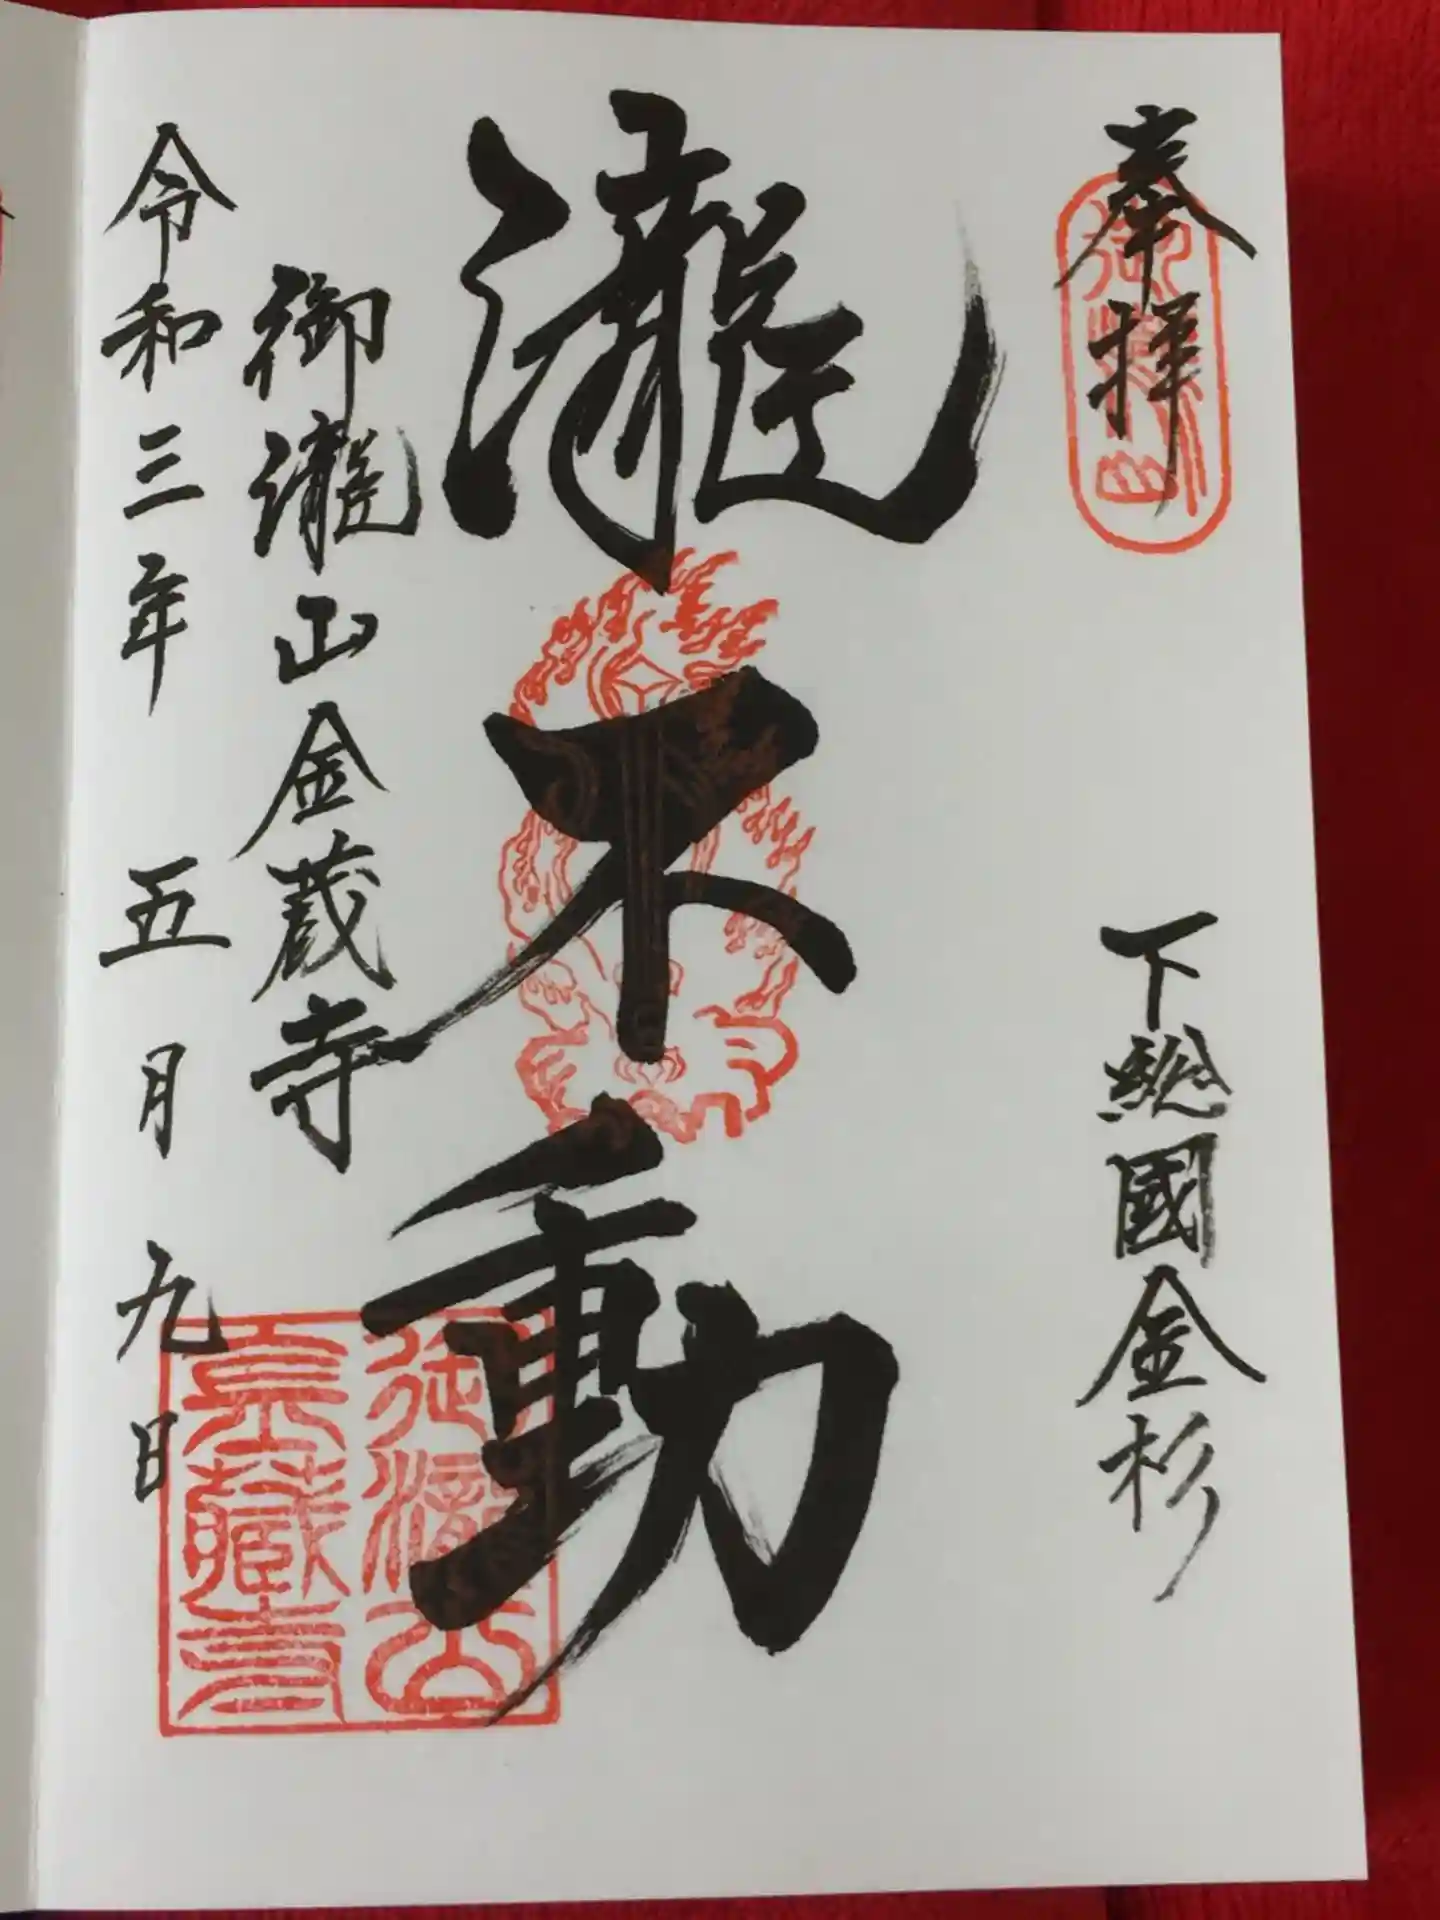 奉拝
下総國金杉
瀧不動
御瀧山金蔵寺
令和三年 五月九日
御瀧山
御瀧山
金藏寺